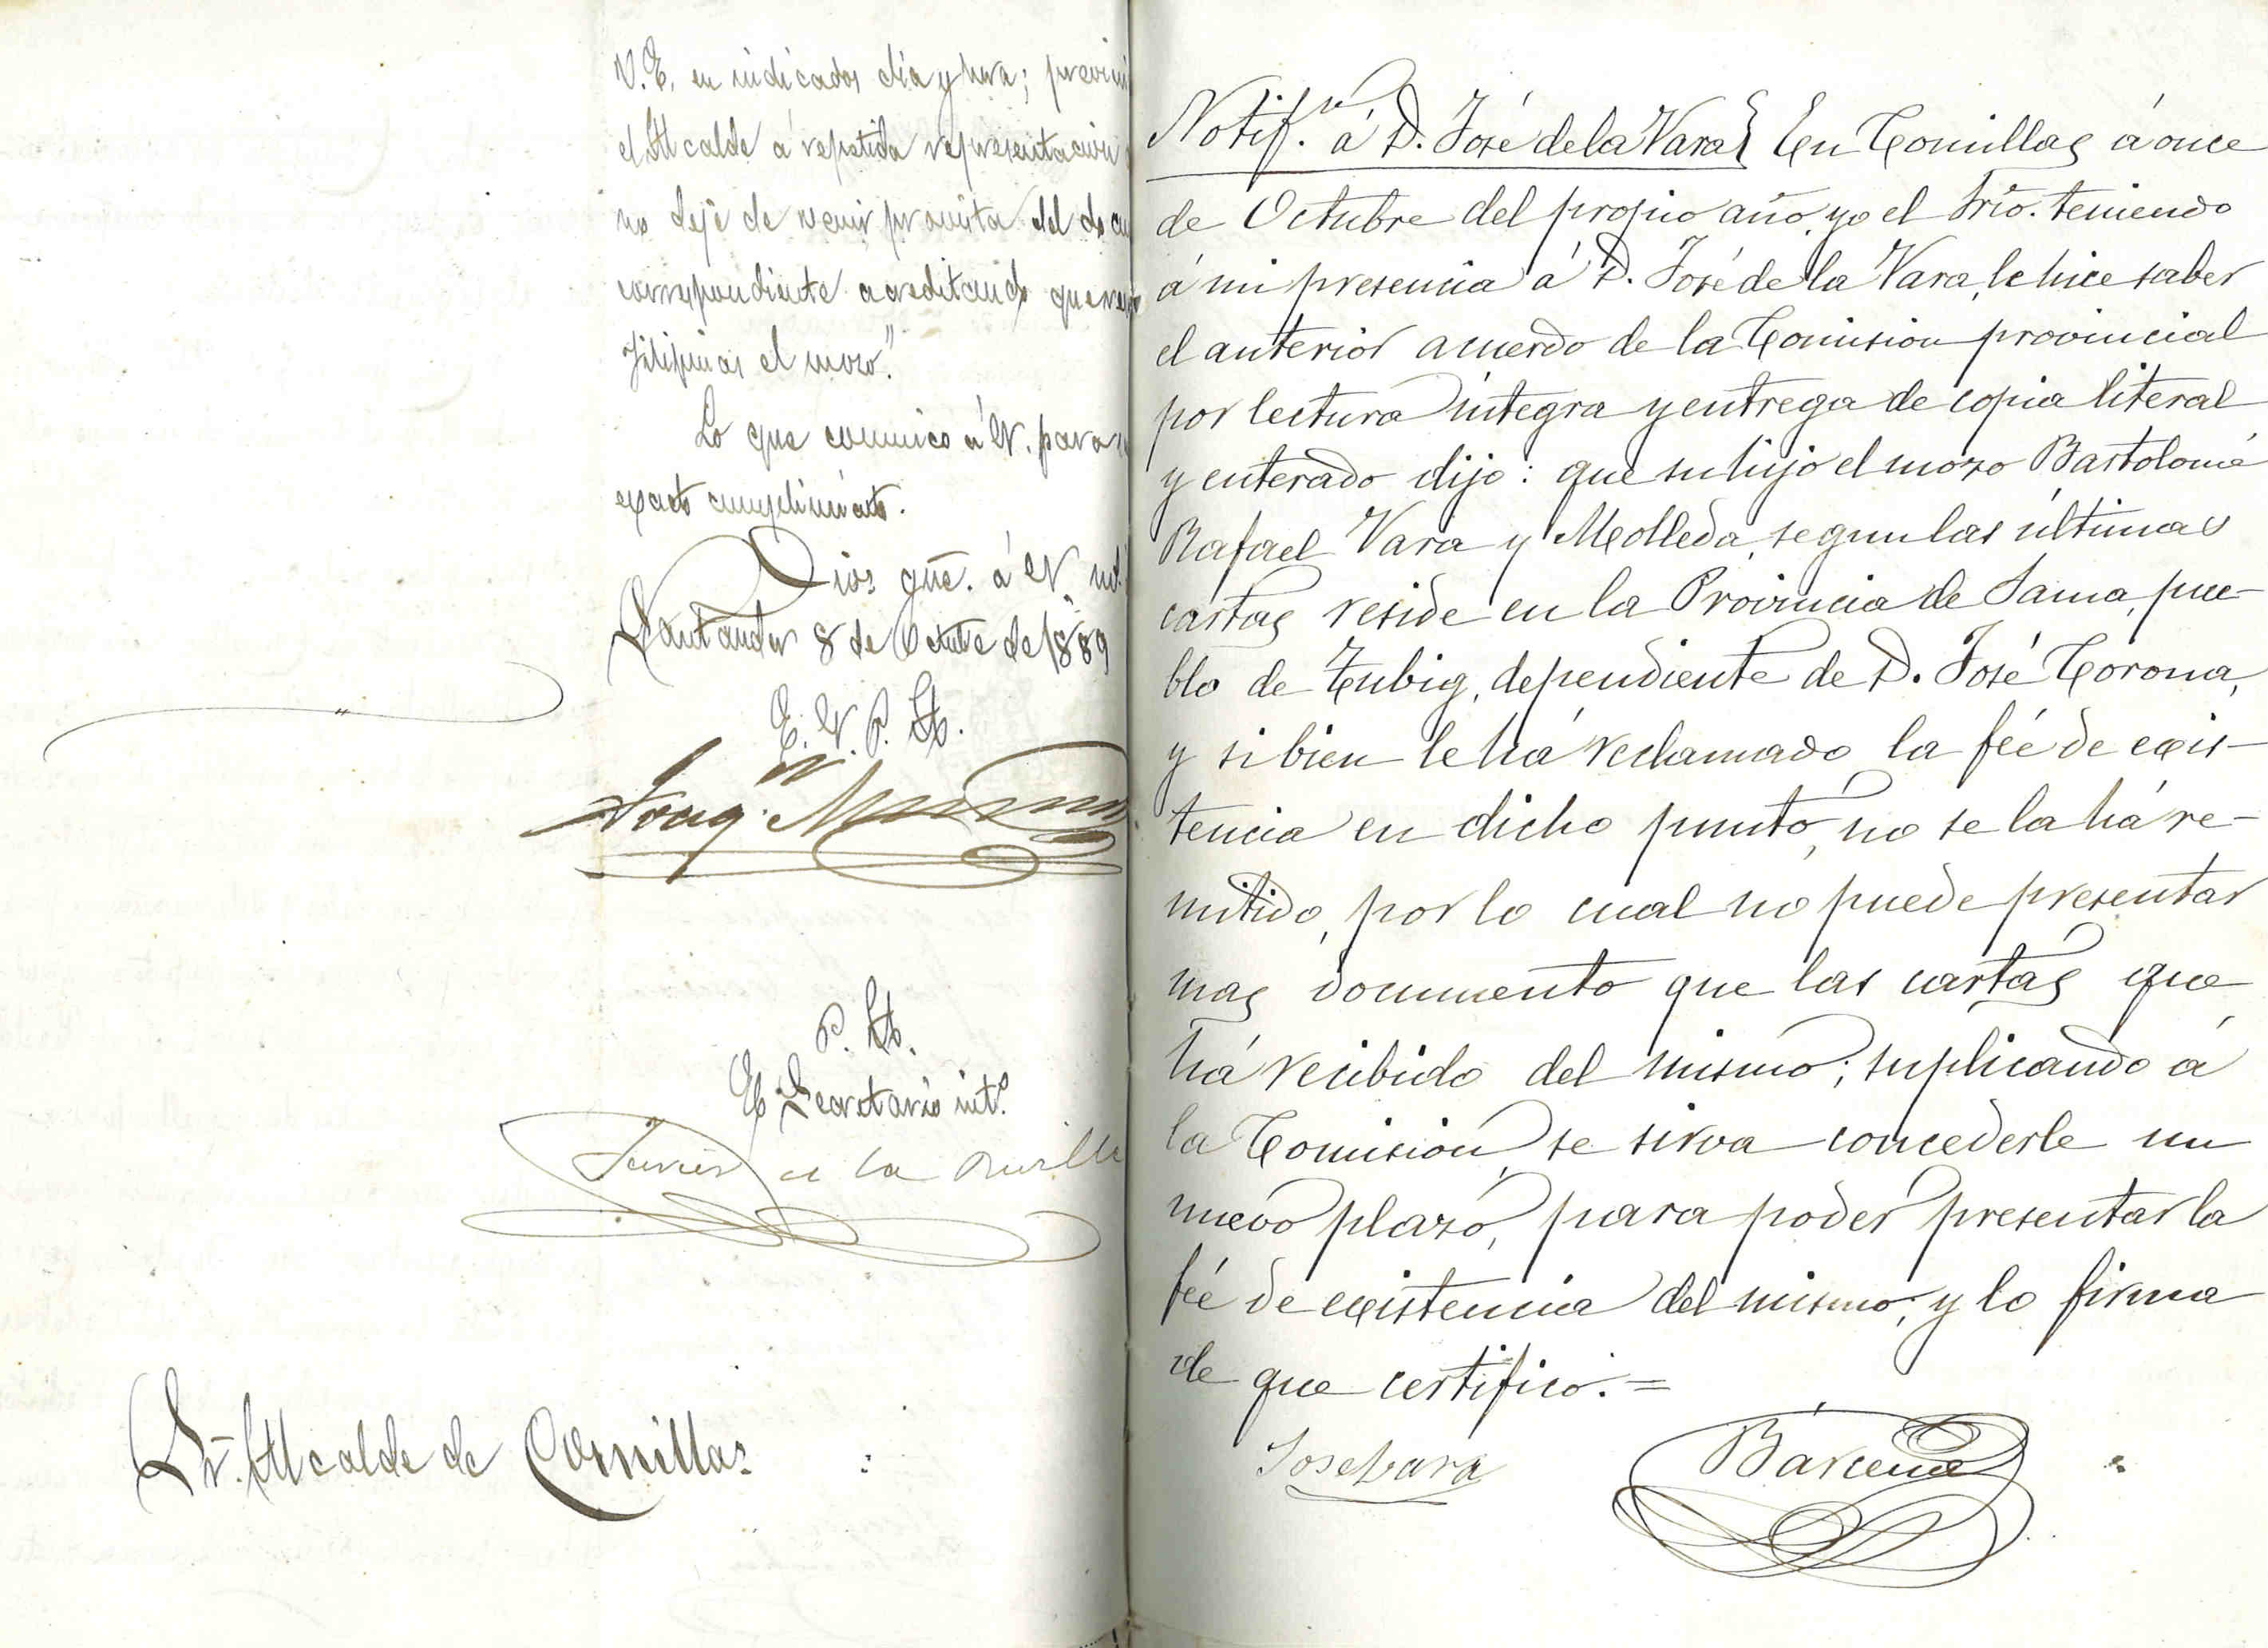 V.E. en indicados dia y hora; previni
el Alcalde á repetida representacion
no deje de venir provista del docu
correspondiente acreditando que resi
Filipinas el mozo."
Lo que comunico á V. para su
exacto cumplimiento.
Dios güe. á V. m.
Santander 8 de Octubre de 1889
E. V. P. A.
Joaq.n
P. A.
El Secretario int.o
Javier de la
Sr. Alcalde de Comillas
Notif.n á D. José de la Vara} En Comillas á once
de Octubre del propio año, yo el Srio. teniendo
á mi presencia á D. José de la Vara, le hice saber
el anterior acuerdo de la Comision provincial
por lectura integra y entrega de copia literal
y enterado dijo: que su hijo el mozo Bartolomé
Rafael Vara y Molleda, segun las últimas
cartas reside en la Provincia de Sama, pue-
blo de Tubig, dependiente de D. José Corona,
y si bien le há reclamado la feé de exis-
tencia en dicho punto, no se la há re-
mitido, por lo cual no puede presentar
mas documento que las cartas que
há recibido del mismo; suplicando á
la Comisión se sirva concederle un
nuevo plazo, para poder presentar la
feé de existencia del mismo; y lo firma
de que certifico.=
Jose bara
Bárcena